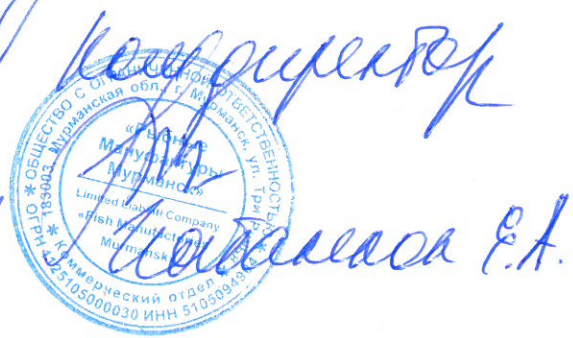 Комдиректор
* ОБЩЕСТВО С ОГРАНИЧЕННОЙ ОТВЕТСТВЕННОСТЬЮ *
183003, Мурманская обл., г. Мурманск, ул.
«Рыбные
Мануфактуры
Мурманск»
Limited Liability Company
«Fish Manufactories
Murmansk»
* Коммерческий отдел *
ОГРН 1025105000030 ИНН
Е.А.